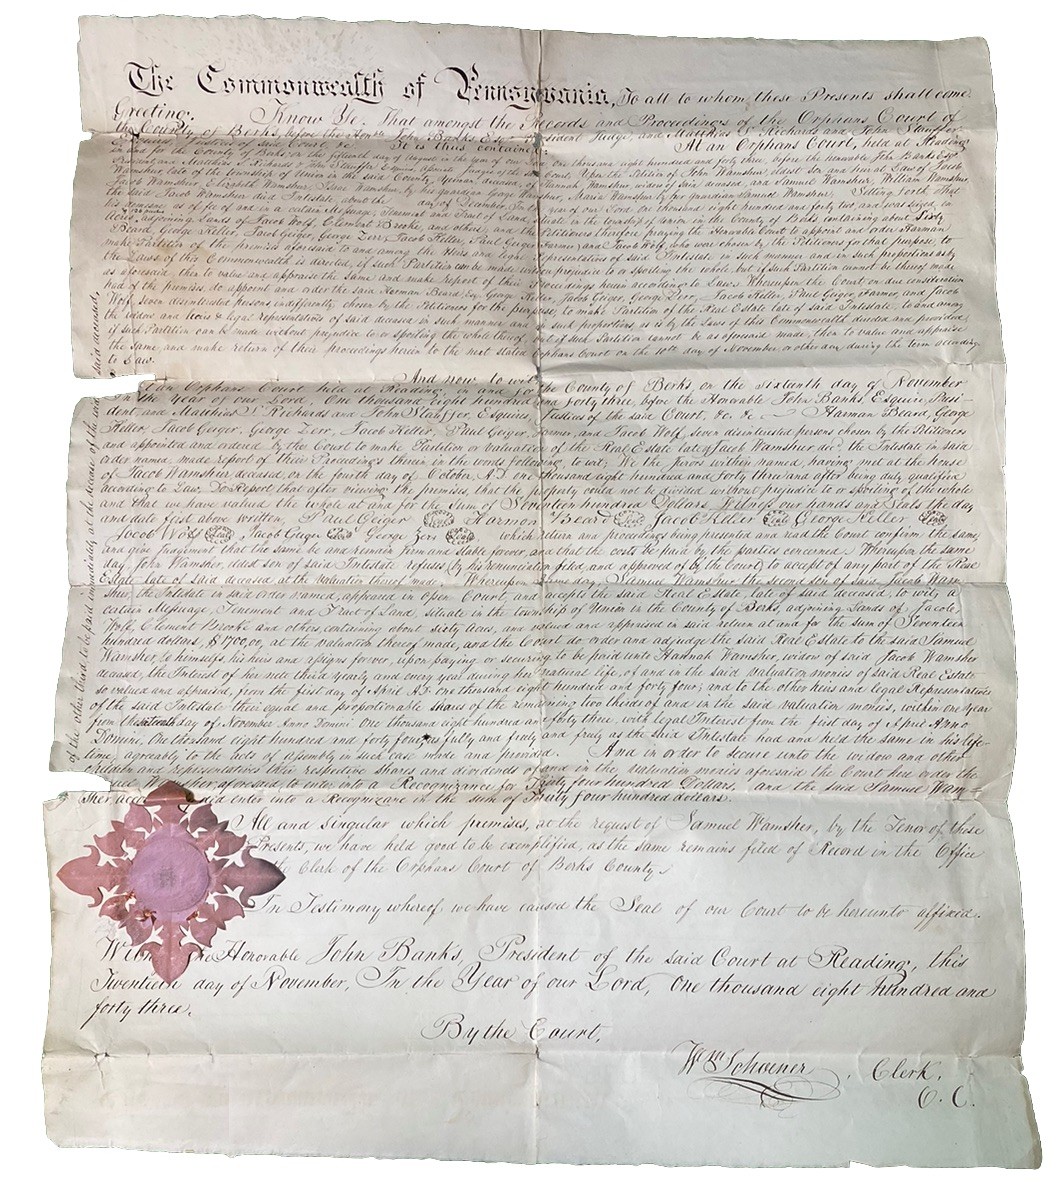 The Commonwealth of Pennsylvania, To all to whom these Presents shall come
Greeting: Know Ye. That amongst the Records and Proceedings of the Orphans Court of
the County of Berks, before the Honble John Banks Esq President Judge, and Matthias S. Richards and John Stauffer
Esquires, Justices of said Court, &c. It is thus contained: At an Orphans Court, held at Reading
in and for the County of Berks, on the fifteenth day of August in the year of our Lord one thousand eight hundred and forty three, before the honorable John Banks Esqr
President and Matthias S. Richards & John Stauffer Esquires, Associate Judges of the said Court. Upon the Petition of John Wamsher, eldest son and heir at Law of Jacob
Wamsher, late of the township of Union in the said County, Yeoman, deceased, Hannah Wamsher, widow of said deceased, and Samuel Wamsher, William Wamsher,
Jacob Wamsher, Elizabeth Wamsher, Isaac Wamsher, by his Guardian George Wamsher, Maria Wamsher by her guardian Samuel Wamsher. Setting forth that
the said Jacob Wamsher died Intestate, about the day of December, In the year of our Lord, One thousand eight hundred and forty two, and was seized, in
his demesne, as of fee of and in a certain Messuage, Tenement and Tract of Land, situate in the township of Union in the County of Berks containing about Sixty
Acres, adjoining Lands of Jacob Wolf, Clement Brooke, and others, and the Petitioners therefore praying the Honorable Court to appoint and order Harman
Beard, George Keller, Jacob Geiger, George Zerr, Jacob Keller, Paul Geiger Farmer, and Jacob Wolf, who were chosen by the Petitioners for that purpose, to
make Partition of the premises aforesaid to and among the Heirs and legal representatives of said Intestate in such manner and in such proportions as by
the Laws of this Commonwealth is directed, if such Partition can be made without prejudice to or spoiling the whole, but if such Partition cannot be thereof made
as aforesaid, then to value and appraise the same, and make report of their Proceedings herein according to Law. Whereupon the Court on due consideration
had of the premises, do appoint and order the said Harman Beard, George Keller, Jacob Geiger, George Zerr, Jacob Keller, Paul Geiger, Farmer, and Jacob
Wolf, seven disinterested persons indifferently chosen by the Petitioners for the purpose, to make Partition of the Real Estate late of said Intestate, to and among
the widow and heirs & legal representatives of said deceased in such manner and in such proportions as is by the Laws of this Commonwealth directed and provided,
if such Partition can be made without prejudice to or spoiling the whole thereof, but if such Partition cannot be as aforesaid made, then to value and appraise
the same, and make return of their proceedings herein to the next stated Orphans Court on the 10th day of November or other day during the term according
to Law.
And now to wit:
At an Orphans Court held at Reading, in and for the County of Berks, on the Sixteenth day of November
In the year of our Lord, One thousand eight hundred and forty three, before the Honorable John Banks, Esquire, Presi-
dent, and Matthias S. Richards and John Stauffer, Esquires, Justices of the said Court, &c &c Harman Beard, George
Keller, Jacob Geiger, George Zerr, Jacob Keller, Paul Geiger, Farmer, and Jacob Wolf, Seven disinterested persons chosen by the Petitioners
and appointed and ordered by the Court to make Partition or Valuation of the Real Estate late of Jacob Wamsher decd. the Intestate in said
order named, made report of their Proceedings therein in the words following, to wit; We the jurors within named, having met at the house
of Jacob Wamsher deceased, on the fourth day of October, A.D. one thousand eight hundred and forty three and after being duly qualified
according to Law, Do Report, that after viewing the premises, that the property could not be divided without prejudice to or spoiling of the whole
and that we have valued the whole at and for the Sum of Seventeen hundred Dollars. Witness our hands and Seals the day
and date first above written, Paul Geiger Seal Harman Beard Seal Jacob Keller Seal George Keller Seal
Jacob Wolf Seal Jacob Geiger Seal George Zerr Seal which return and proceedings being presented and read the Court confirm the same,
and give Judgement that the same be and remain firm and stable forever, and that the costs be paid by the parties concerned. Whereupon the same
day, John Wamsher, eldest son of said Intestate refuses (by his renunciation filed, and approved of by the Court) to accept of any part of the Real
Estate late of said deceased, at the Valuation thereof made. Whereupon same day, Samuel Wamsher the second son of said Jacob Wam-
sher, the Intestate in said order named, appeared in Open Court and accepts the said Real Estate, late of said deceased, to wit, a
certain Messuage, Tenement and Tract of Land, situate in the township of Union in the County of Berks, adjoining Lands of Jacob
Wolf, Clement Brooke and others, containing about sixty Acres, and valued and appraised in said return at and for the sum of Seventeen
hundred dollars, $1700,00, at the valuation thereof made, and the Court do order and adjudge the said Real Estate to the said Samuel
Wamsher, to himself, his heirs and assigns forever, upon paying or securing to be paid unto Hannah Wamsher, widow of said Jacob Wamsher
deceased, the Interest of her note third yearly and every year during her natural life, of and in the said valuation monies of said Real Estate
so valued and appraised, from the first day of April A.D. one thousand eight hundred and forty four; and to the other heirs and legal Representatives
of the said Intestate their equal and proportionable shares of the remaining two thirds of and in the said valuation monies, within one year
from the sixteenth day of November Anno Domini One thousand eight hundred and forty three, with legal Interest from the first day of April Anno
Domini, One thousand eight hundred and forty four, as fully and freely and truly as the said Intestate had and held the same in his life-
time, agreeably to the acts of assembly in such case made and provided. And in order to secure unto the widow and other
children and representatives their respective shares and dividends of and in the valuation monies aforesaid the Court here order the
said Wamsher aforesaid, to enter into a Recognizance for Thirty four hundred Dollars, and the said Samuel Wam-
sher, did enter into a Recognizance in the sum of Thirty four hundred dollars.
All and singular which premises, at the request of Samuel Wamsher, by the Tenor of these
Presents, we have held good to be exemplified, as the same remains filed of Record in the Office
the Clerk of the Orphans Court of Berks County.
In Testimony whereof we have caused the Seal of our Court to be hereunto affixed.
the Honorable John Banks, President of the said Court at Reading, this
Twentieth day of November, In the Year of our Lord, One thousand eight hundred and
forty three.
By the Court,
Wm Schoener, Clerk,
O. C.
of the other third, to be paid immediately at the decease of the said said deceased,